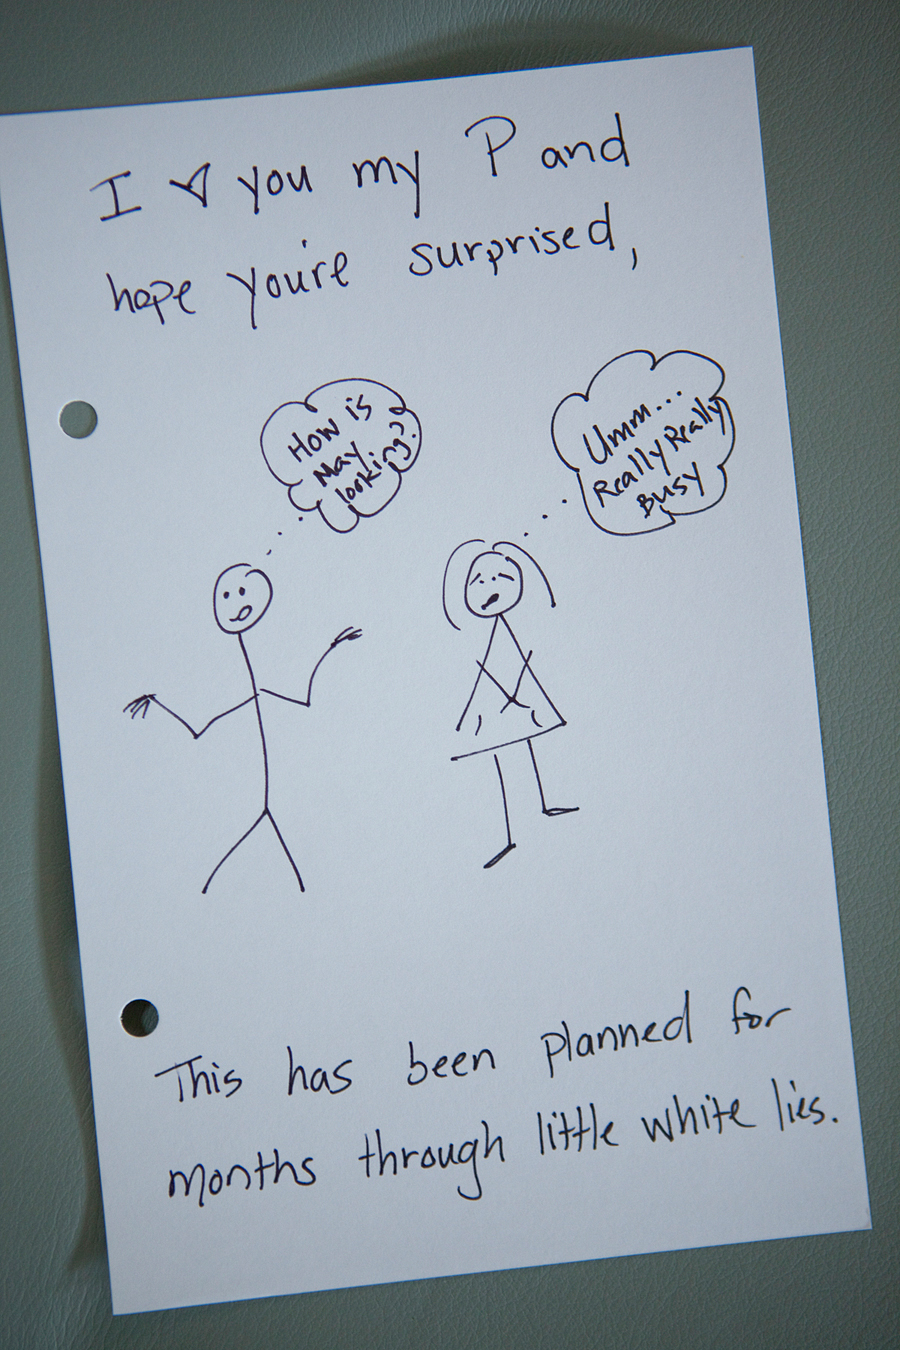 I ♥ you my P and
hope you're surprised,
How is
May
looking?
Umm...
Really Really
Busy
This has been planned for
months through little white lies.